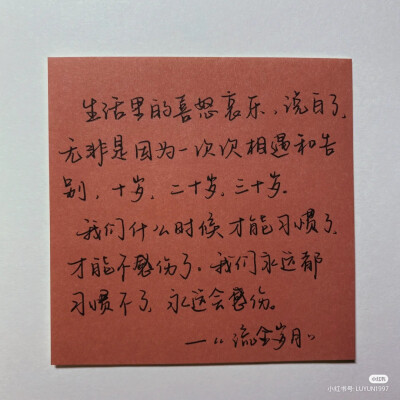 生活里的喜怒哀乐，说白了，
无非是因为一次次相遇和告
别，十岁，二十岁，三十岁。
我们什么时候才能习惯了，
才能不感伤了，我们永远都
习惯不了，永远会感伤。
—《流金岁月》
小红书
小红书号:LUYUN1997